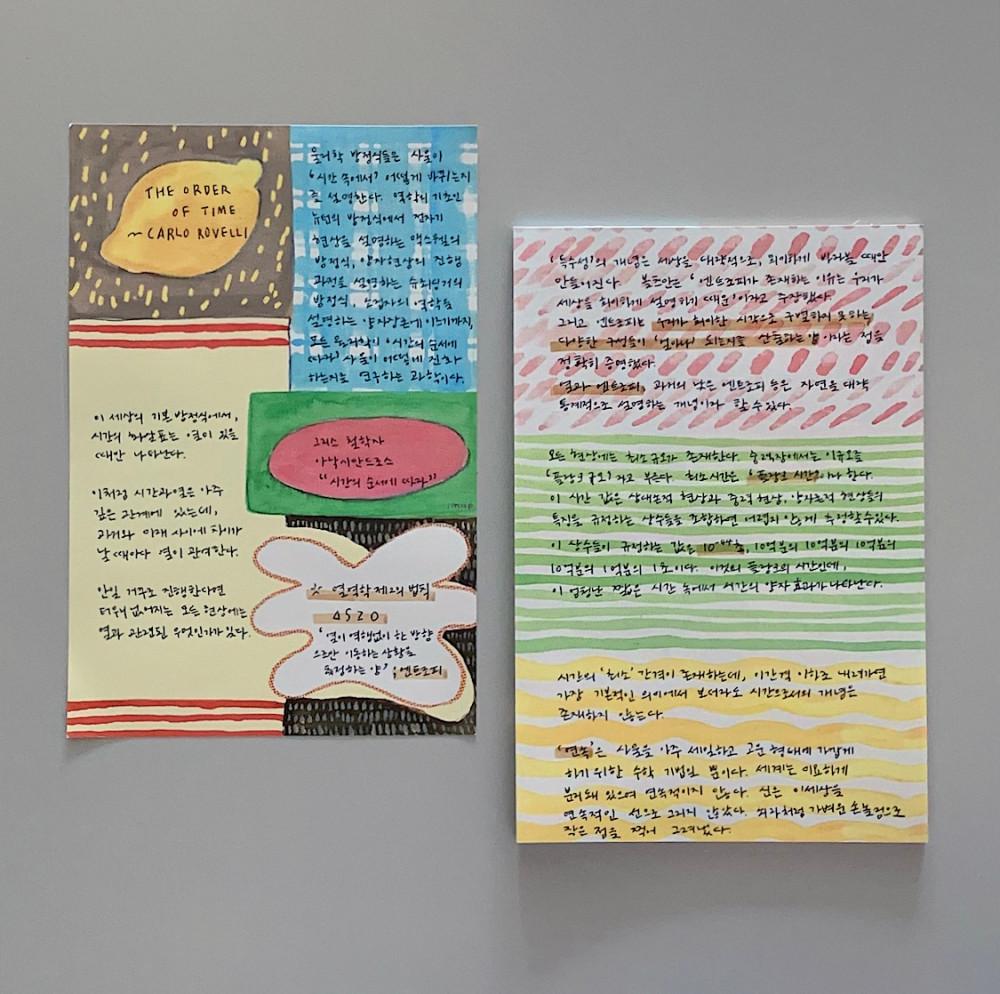 THE ORDER
OF TIME
~ CARLO ROVELLI
물리학 방정식들은 사물이
'시간 속에서' 어떻게 바뀌는지
를 설명한다. 역학의 기초인
뉴턴의 방정식에서 전자기
현상을 설명하는 맥스웰의
방정식, 양자현상의 진행
과정을 설명하는 슈뢰딩거의
방정식, 소립자의 역학을
설명하는 양자장론에 이르기까지,
모든 물리학이 '시간의 순서에
따라' 사물이 어떻게 진화
하는지를 연구하는 과학이다.
이 세상의 기본 방정식에서,
시간의 화살표는 열이 있을
때만 나타난다.
이처럼 시간과 열은 아주
깊은 관계에 있는데,
과거와 미래 사이에 차이가
날 때마다 열이 관여한다.
만일 거꾸로 진행한다면
터무니 없어지는 모든 현상에는
열과 관련된 무엇인가가 있다.
그리스 철학자
아낙시만드로스
"시간의 순서에 따라"
☆ 열역학 제2의 법칙
ΔS≥0
'열이 역행없이 한 방향
으로만 이동하는 상황을
측정하는 양' ; 엔트로피
'특수성'의 개념은 세상을 대략적으로, 희미하게 바라볼 때만
만들어진다. 볼츠만은 '엔트로피가 존재하는 이유는 우리가
세상을 희미하게 설명하기 때문'이라고 주장했다.
그리고 엔트로피는 우리가 희미한 시각으로 구별하지 못하는
다양한 구성들이 '얼마나' 되는지를 산출하는 양이라는 점을
정확히 증명했다.
열과 엔트로피, 과거의 낮은 엔트로피 등은 자연을 대략
통계적으로 설명하는 개념이라 할 수 있다.
모든 현상에는 최소 규모가 존재한다. 중력장에서는 이 규모를
'플랑크 규모'라고 부른다. 최소 시간은 '플랑크 시간'이라 한다.
이 시간 값은 상대론적 현상과 중력 현상, 양자론적 현상들의
특징을 규정하는 상수들을 조합하면 어렵지 않게 추정할 수 있다.
이 상수들이 규정하는 값은 10⁻⁴⁴초, 10억분의 10억분의 10억분의
10억분의 1억분의 1초이다. 이것이 플랑크의 시간인데,
이 엄청난 짧은 시간 속에서 시간의 양자 효과가 나타난다.
시간의 '최소' 간격이 존재하는데, 이 간격 이하로 내려가면
가장 기본적인 의미에서 보더라도 시간으로서의 개념은
존재하지 않는다.
'연속'은 사물을 아주 세밀하고 고운 형태에 가깝게
하기 위한 수학 기법일 뿐이다. 세계는 미묘하게
분리돼 있으며 연속적이지 않다. 신은 이 세상을
연속적인 선으로 그리지 않았다. 쇠라처럼 가벼운 손놀림으로
작은 점을 찍어 그려냈다.